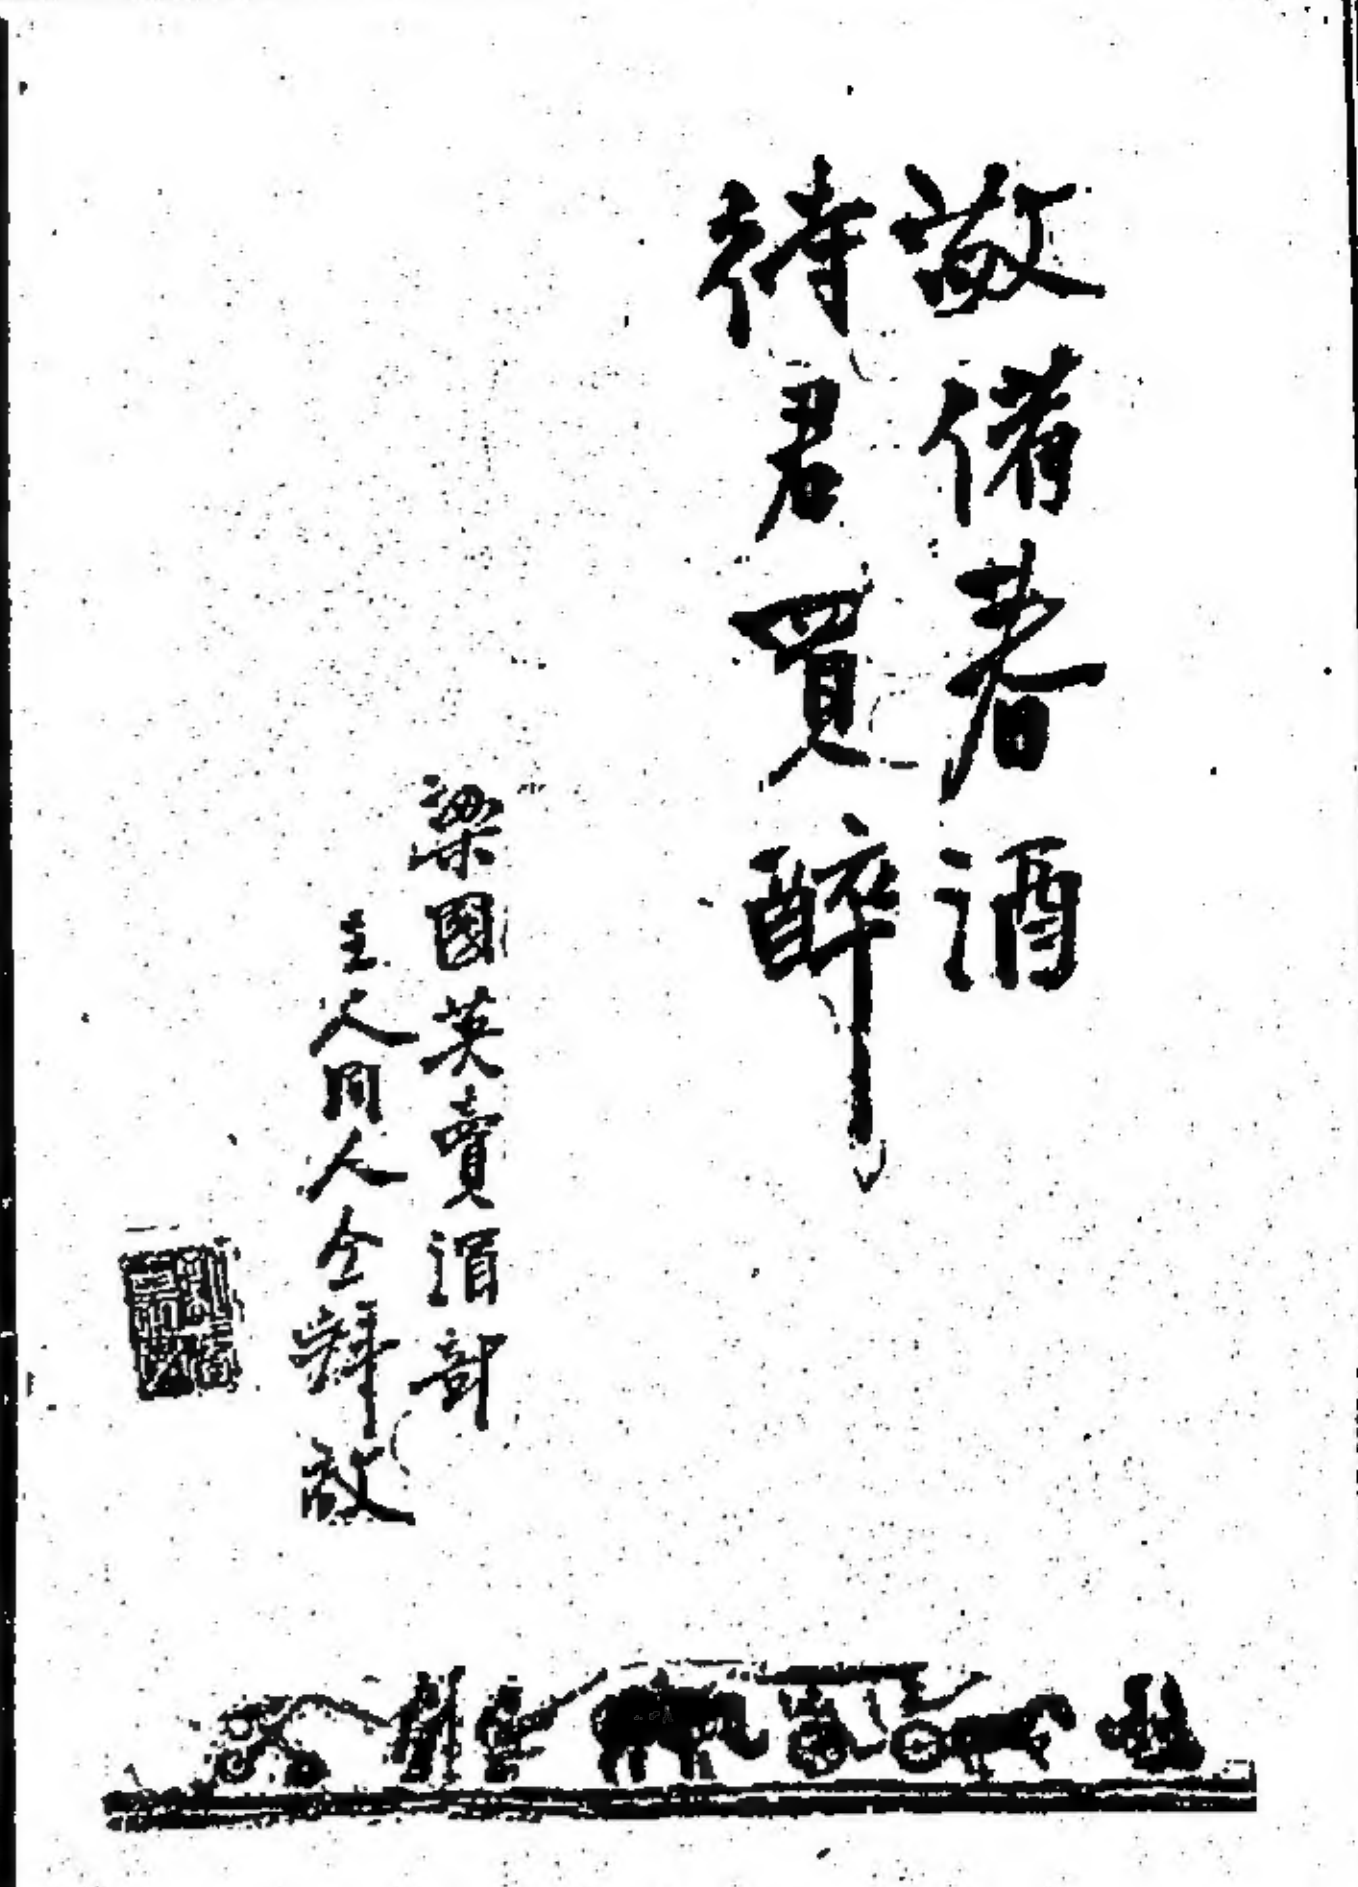 敬備春酒
待君買醉
梁國英賣酒部
主人同人仝拜啟